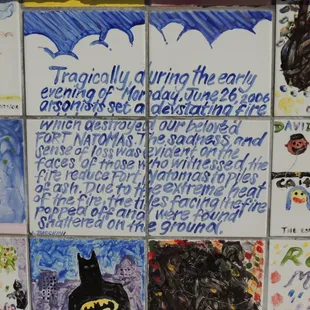 Tragically, during the early
evening of Monday, June 26, 2006
arsonists set a devstating fire
which destroyed our beloved
FORT NATOMAS. The sadness and
sense of loss was evident on the
faces of those who witnessed, the
fire reduce Fort Natomas to piles
of ash. Due to the extreme heat
of the fire, the tiles facing the fire
popped off and were found
shattered on the ground.
DAVID